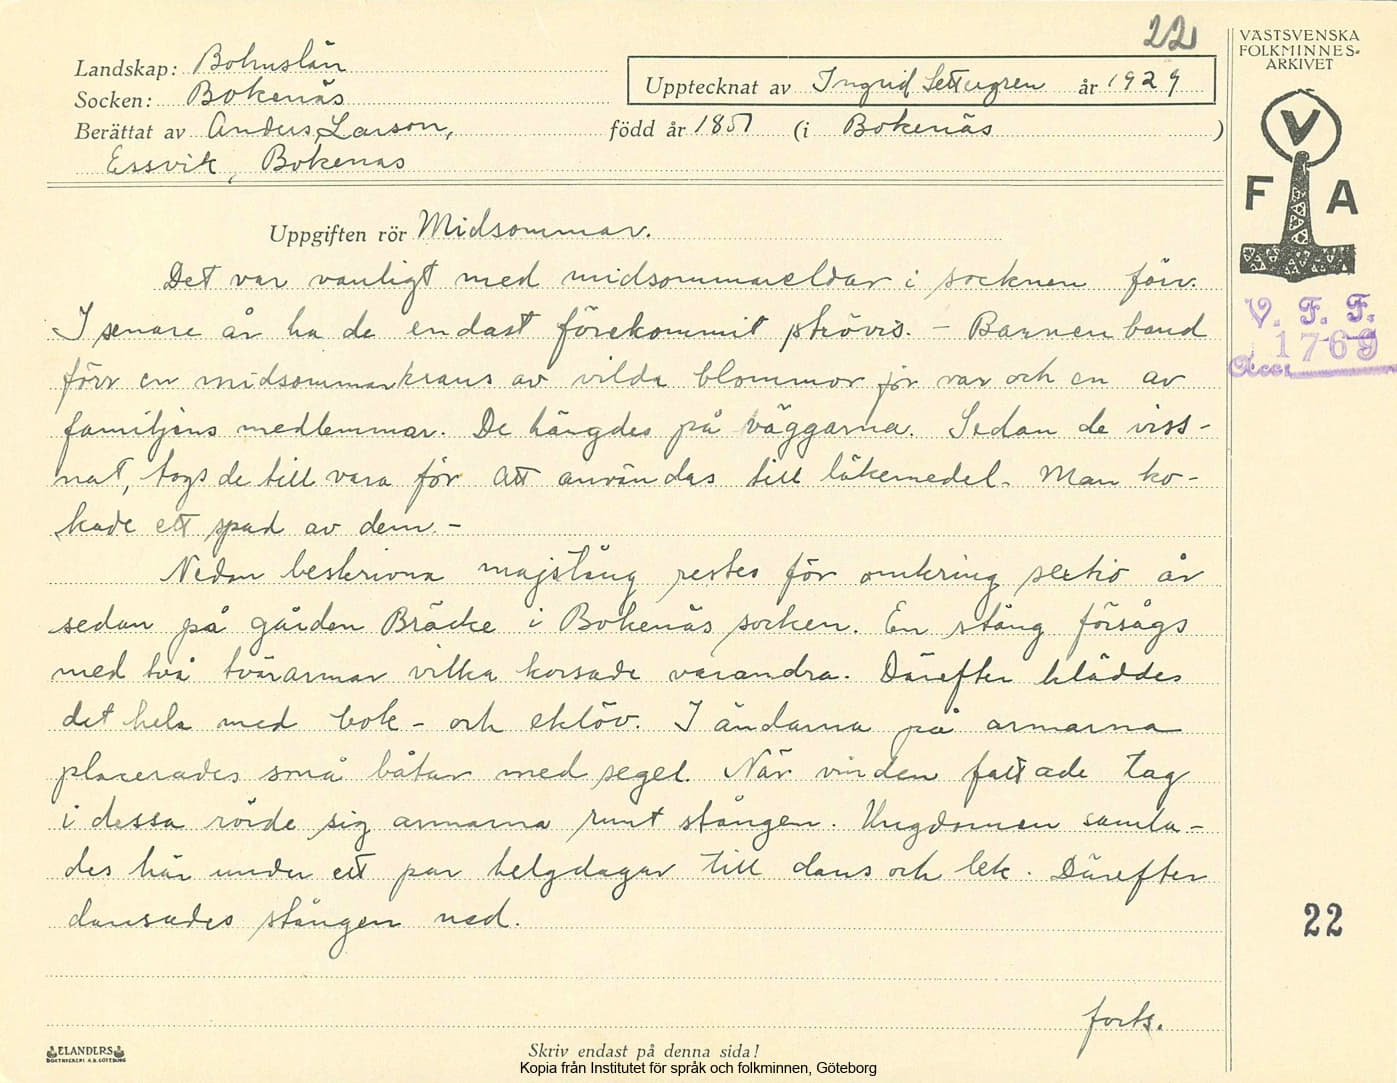 22
VÄSTSVENSKA
FOLKMINNES-
ARKIVET
Landskap: Bohuslän
Upptecknat av Ingrid Settergren år 1929
Socken: Bokenäs
Berättat av Anders Larson, född år 1851 (i Bokenäs )
Essvik, Bokenäs
V
F A
Uppgiften rör Midsommar.
Det var vanligt med midsommareldar i socknen förr.
I senare år ha de endast förekommit strövis. – Barnen band
förr en midsommarkrans av vilda blommor för var och en av
familjens medlemmar. De hängdes på väggarna. Sedan de viss-
nat, togs de till vara för att användas till läkemedel. Man ko-
kade ett spad av dem. –
V. F. F.
1769
Acc.
Nedan beskrivna majstång restes för omkring sextio år
sedan på gården Bräcke i Bokenäs socken. En stång försågs
med två tvärarmar vilka korsade varandra. Därefter kläddes
det hela med bok- och eklöv. I ändarna på armarna
placerades små båtar med segel. När vinden fattade tag
i dessa rörde sig armarna runt stången. Ungdomen samla-
des här under ett par helgdagar till dans och lek. Därefter
dansades stången ned.
22
forts.
ELANDERS
BOKTRYCKERI A.B. GÖTEBORG
Skriv endast på denna sida!
Kopia från Institutet för språk och folkminnen, Göteborg